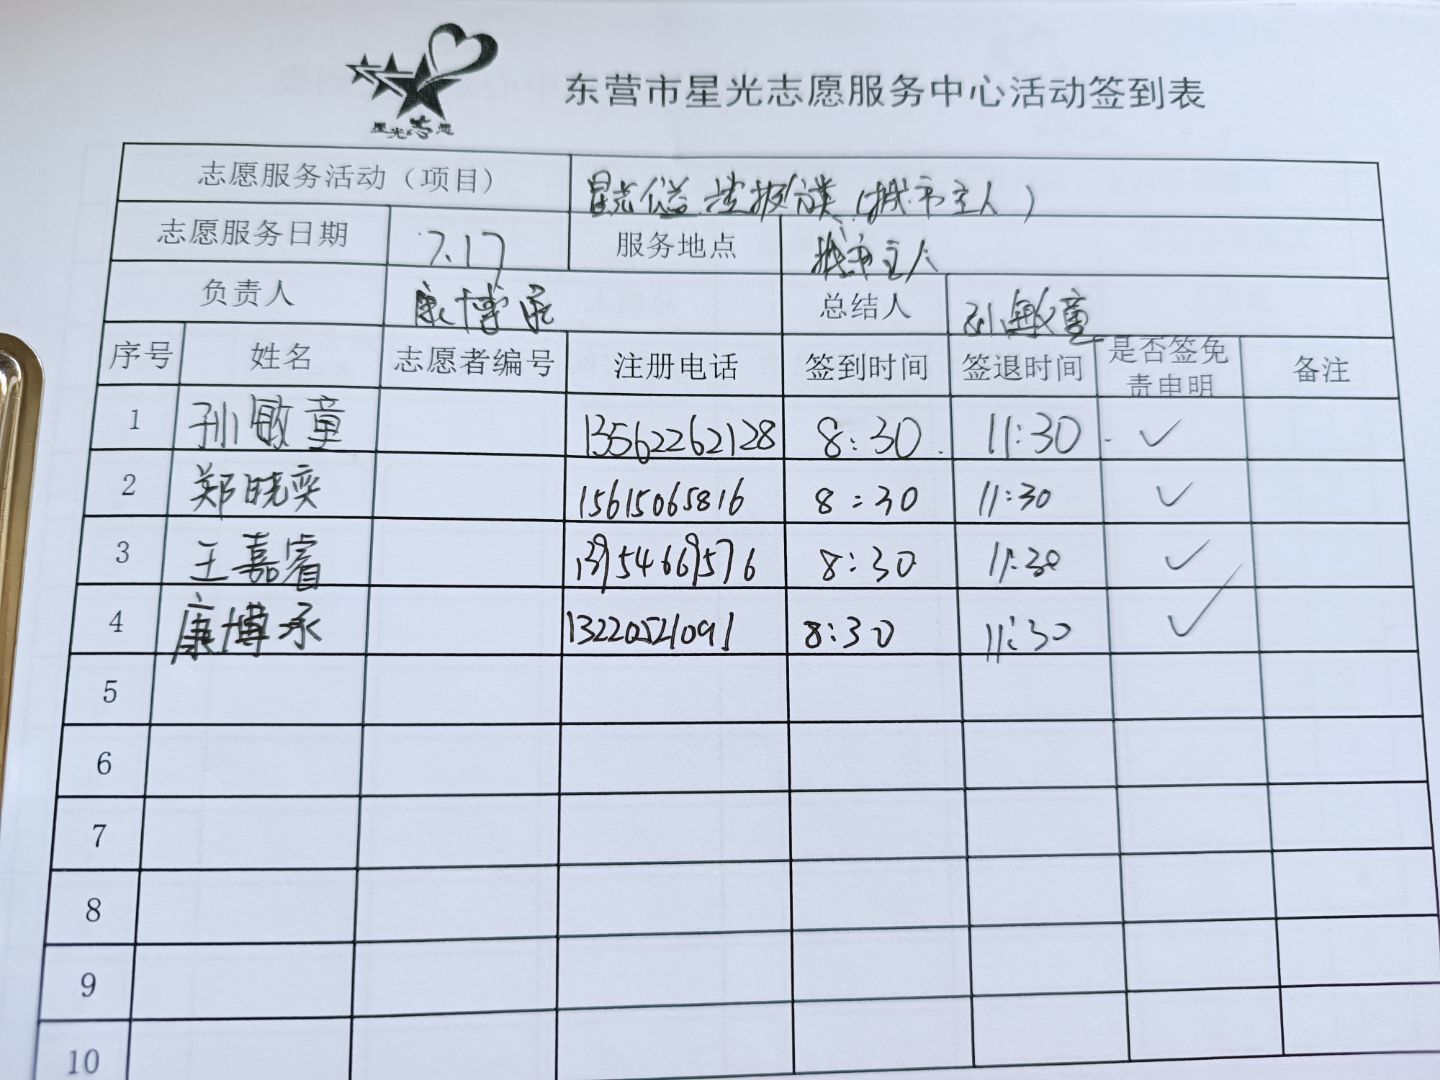 星光志愿
东营市星光志愿服务中心活动签到表
志愿服务活动（项目） (城市主人)
志愿服务日期 7.17 服务地点 城市主人
负责人 康博承 总结人 孙敏童
序号 姓名 志愿者编号 注册电话 签到时间 签退时间 是否签免责申明 备注
1 孙敏童 13562262128 8:30 11:30 ✓
2 郑晓奕 15615065816 8:30 11:30 ✓
3 王嘉睿 13954669576 8:30 11:30 ✓
4 康博承 13220521091 8:30 11:30 ✓
5
6
7
8
9
10